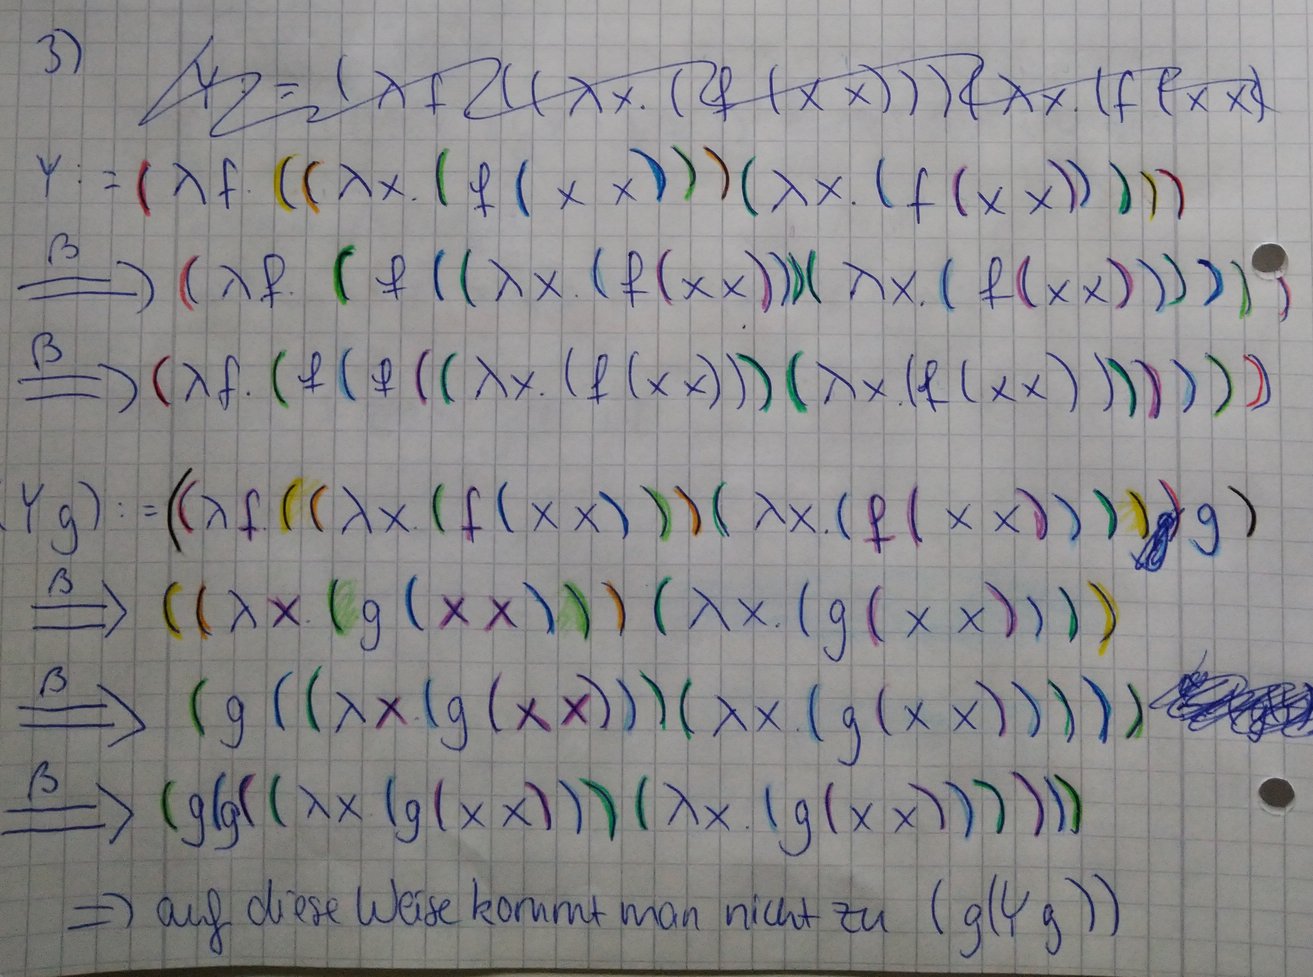 3)
Y := (λf ((λx. (f (x x))) (λx. (f (x x)
Y := (λf. ((λx. (f (x x))) (λx. (f (x x)))))
β⟹ (λf. (f ((λx. (f (x x))) (λx. (f (x x))))))
β⟹ (λf. (f (f ((λx. (f (x x))) (λx. (f (x x)))))))
(Y g) := ((λf. ((λx. (f (x x))) (λx. (f (x x))))) g)
β⟹ ((λx. (g (x x))) (λx. (g (x x))))
β⟹ (g ((λx. (g (x x))) (λx. (g (x x)))))
β⟹ (g (g ((λx. (g (x x))) (λx. (g (x x))))))
⇒ auf diese Weise kommt man nicht zu (g (Y g))